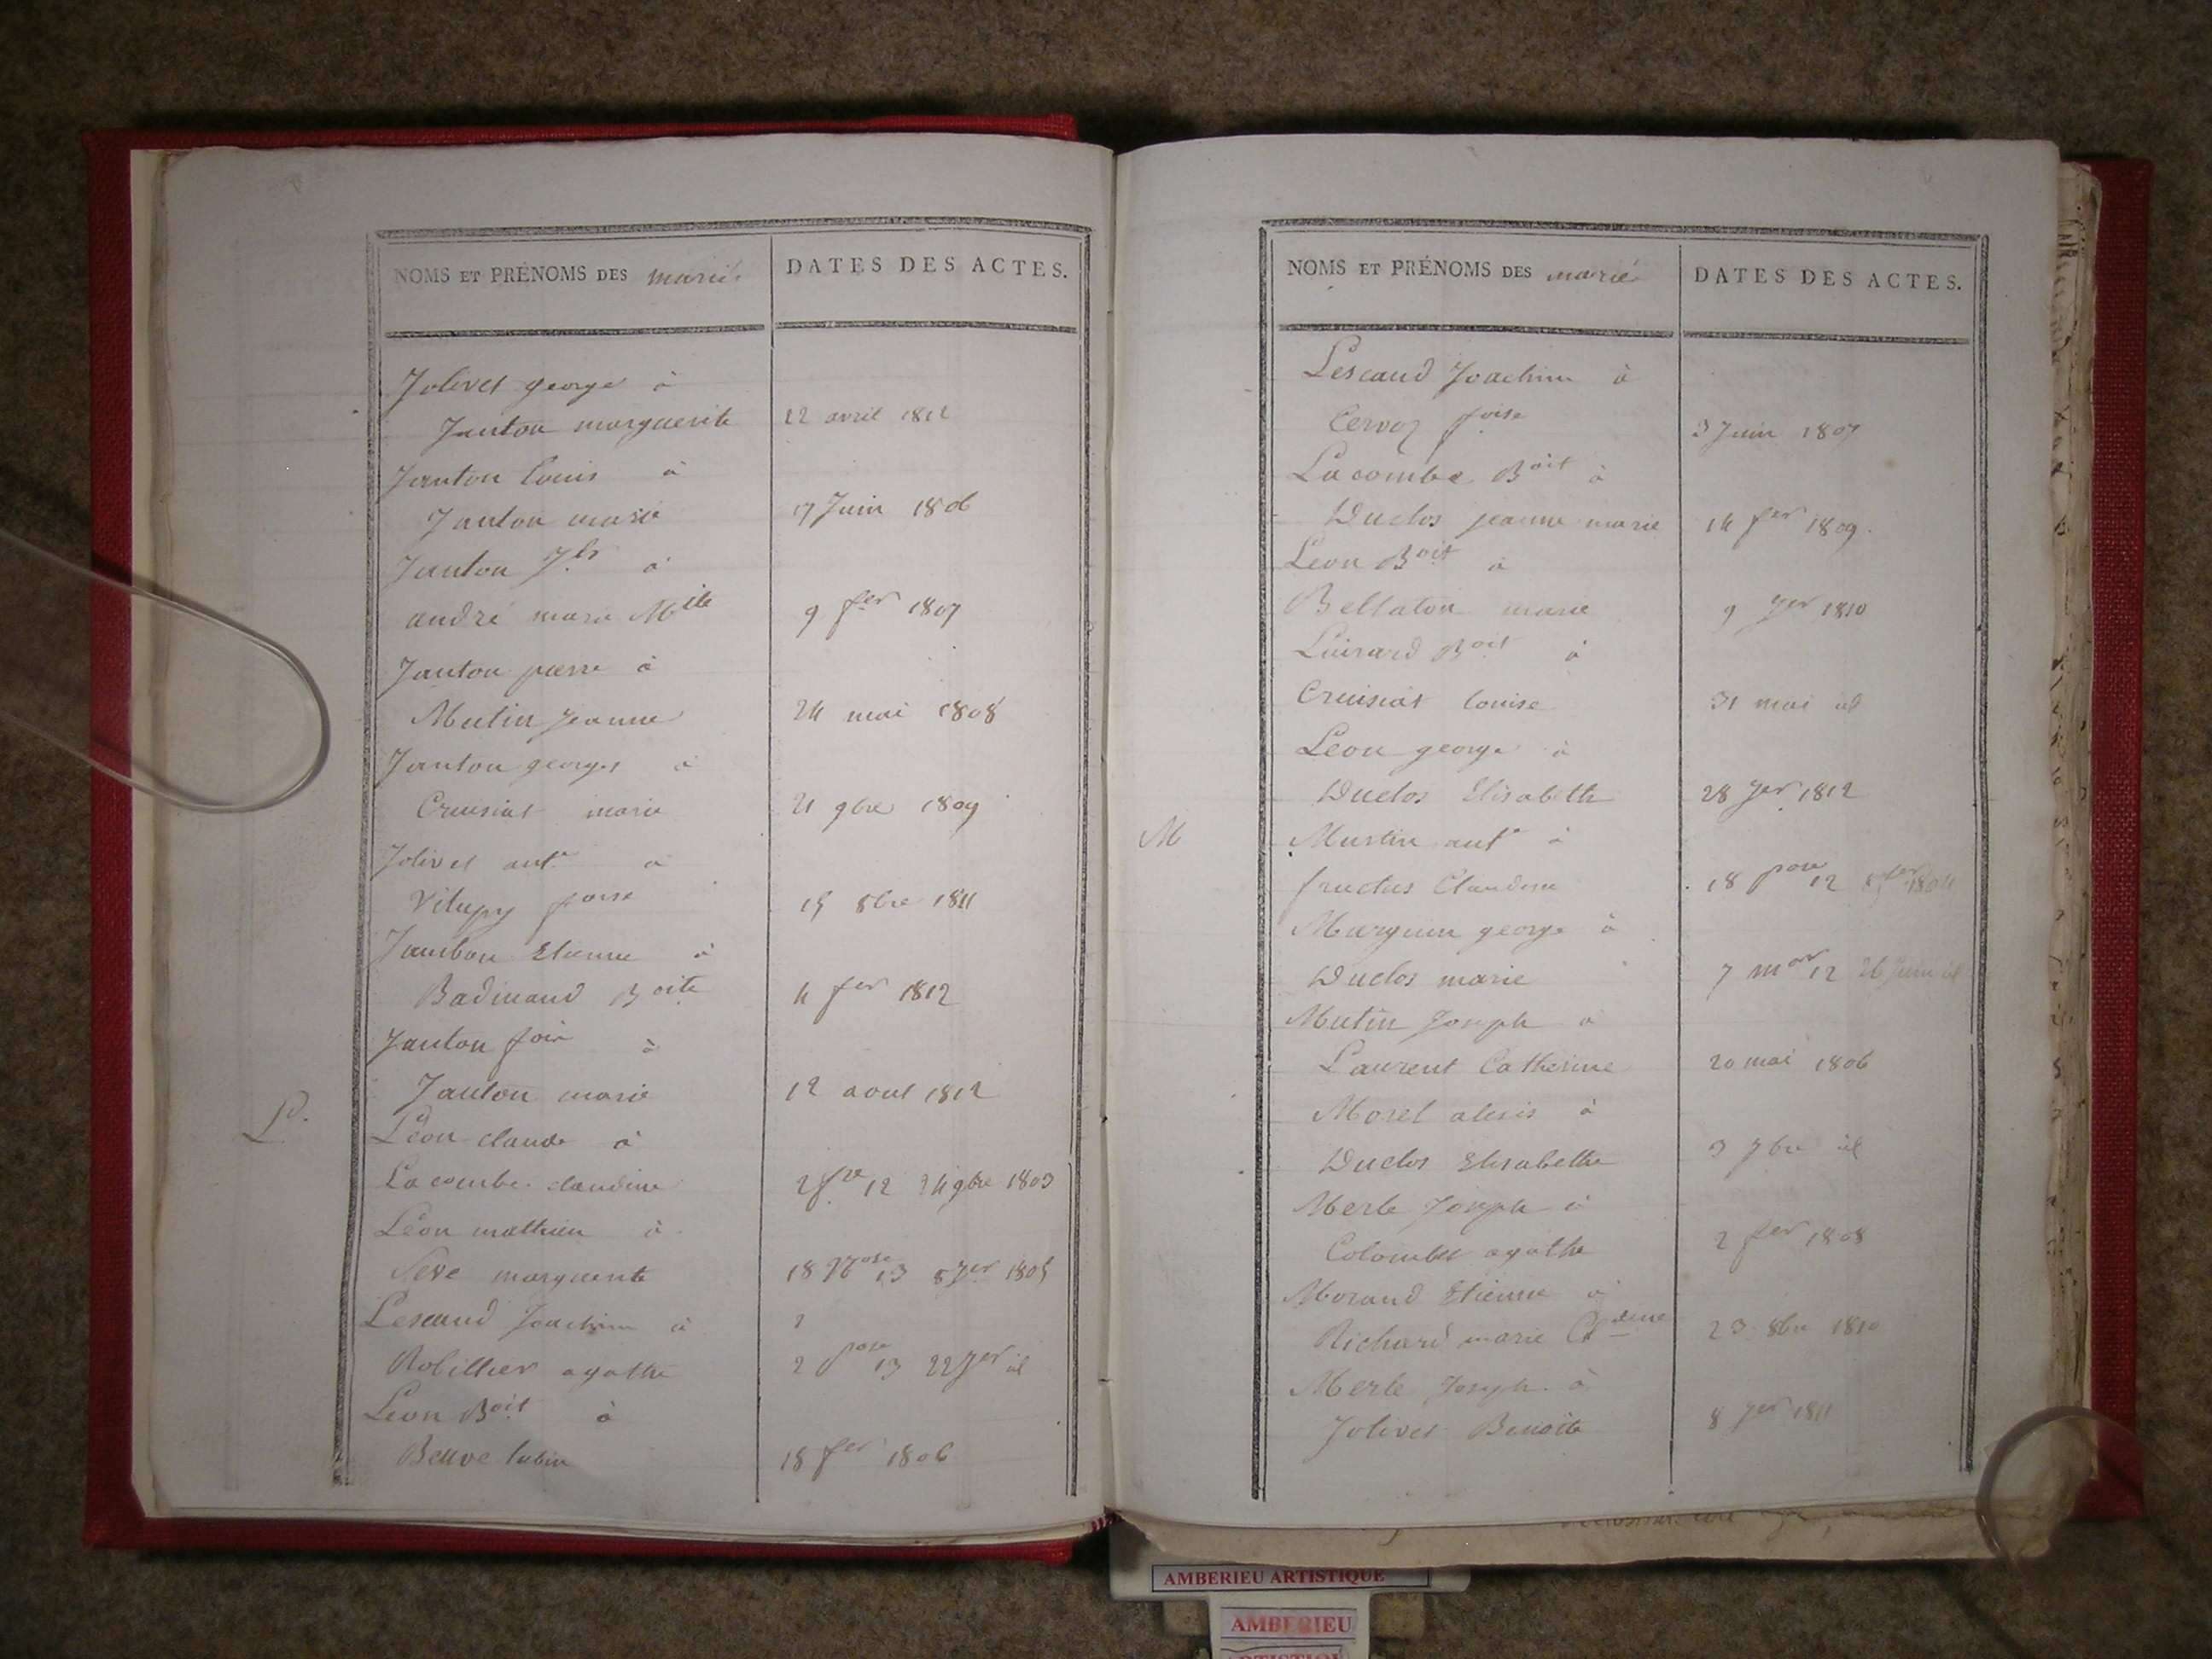 NOMS ET PRÉNOMS DES mariés
DATES DES ACTES.
Jolivet george à
Janton marguerite 22 avril 1812
Janton Louis à
Janton marie 17 Juin 1806
Janton à
andré marie Mite 9 fer 1807
Janton pierre à
Mutin jeanne 24 mai 1808
Janton georges à
Cruisiat marie 21 9bre 1809
Jolivet ant.e à
Vilupy foise 15 8bre 1811
Jambon Etienne à
Badinand Boite 4 fer 1812
Janton fois à
Janton marie 12 aout 1812
L.
Léon claude à
Lacombe claudine 2 fre 12 24 9bre 1803
Léon mathieu à
Seve marguerite 18 13 8 Jer 1805
Lescaud Joachim à
Robillier agathe 2 13 22 Jer id
Leon Boit à
Beuve lubin 18 fer 1806
NOMS ET PRÉNOMS DES mariés
DATES DES ACTES.
Lescaud Joachim à
Cervoz foise 3 Juin 1807
Lacombe Boit à
Duclos jeanne marie 14 fer 1809.
Leon Boit à
Bellaton marie 9 Jer 1810
Luisard Boit à
Cruisiat louise 31 mai id
Leon george à
Duclos Elisabeth 28 Jer 1812
M
Martin ant.e à
fructus Claudine 18 12 1804
Marguin george à
Duclos marie 7 12 26 Juin id
Mutin Joseph à
Laurent Catherine 20 mai 1806
Morel alexis à
Duclos Elisabethe 3 7bre id
Merle Joseph à
Colombet agathe 2 fer 1808
Morand Etienne à
Richard marie Cldine 23 8bre 1810
Merle Joseph à
Jolivet Benoite 8 Jer 1811
AMBERIEU ARTISTIQUE
AMBERIEU
ARTISTIQUE